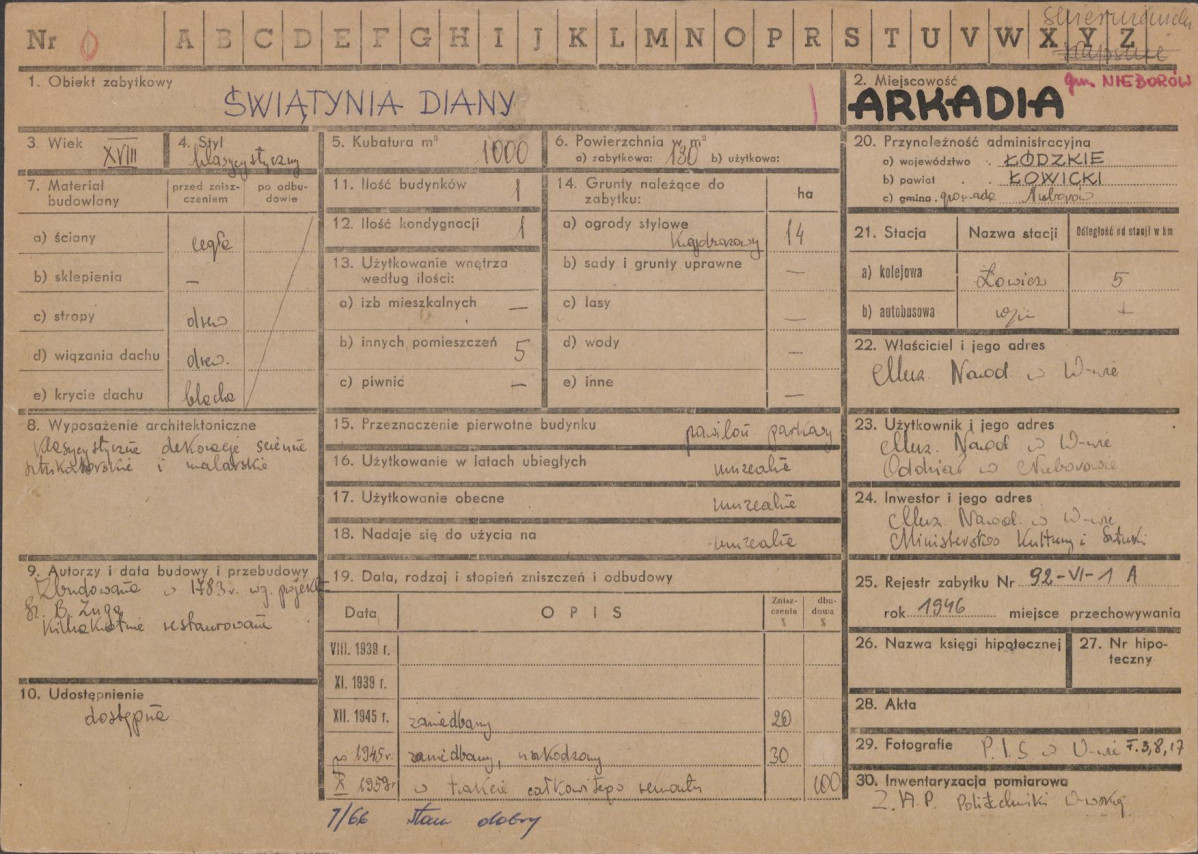 Nr 0 A B C D E F G H I J K L M N O P R S T U V W X Y Z
gm NIEBORÓW
1. Obiekt zabytkowy
ŚWIĄTYNIA DIANY
2. Miejscowość
ARKADIA
3. Wiek
XVIII
4. Styl
klasycystyczny
5. Kubatura m³
1000
6. Powierzchnia w m²
a) zabytkowa: 130 b) użytkowa:
7. Materiał budowlany
przed znisz-
czeniem
po odbu-
dowie
a) ściany cegła
b) sklepienia –
c) stropy drew
d) wiązania dachu drew.
e) krycie dachu blacha
8. Wyposażenie architektoniczne
klasycystyczne dekoracje ścienne
sztukatorskie i malarskie
9. Autorzy i data budowy i przebudowy
Zbudowana w 1783 r. wg. projekt
Sz. B. Zuga
kilkakrotnie restaurowana
10. Udostępnienie
dostępna
11. Ilość budynków 1
12. Ilość kondygnacji 1
13. Użytkowanie wnętrza
według ilości:
a) izb mieszkalnych –
b) innych pomieszczeń 5
c) piwnić –
14. Grunty należące do
zabytku:
ha
a) ogrody stylowe
Krajobrazowy 14
b) sady i grunty uprawne –
c) lasy –
d) wody –
e) inne –
15. Przeznaczenie pierwotne budynku pawilon parkowy
16. Użytkowanie w latach ubiegłych muzealne
17. Użytkowanie obecne muzealne
18. Nadaje się do użycia na muzealne
19. Data, rodzaj i stopień zniszczeń i odbudowy
Data OPIS
Znisz-
czenie
%
dbu-
dowa
%
VIII. 1939 r.
XI. 1939 r.
XII. 1945 r. zaniedbany 20
po 1945 r. zaniedbany, uszkodzony 30
X 1959r w trakcie całkowitego remontu 100
7/66 stan dobry
20. Przynoleżność administracyjna
a) województwo ŁÓDZKIE
b) powiat ŁOWICKI
c) gmina gromada Nieborów
21. Stacja Nazwa stacji Odległość od stacji w km
a) kolejowa Łowicz 5
b) autobusowa
22. Właściciel i jego adres
Muz. Narod. w W-wie
23. Użytkownik i jego adres
Muz. Narod w W-wie
Oddział w Nieborowie
24. Inwestor i jego adres
Muz. Narod. w W-wie
Ministerstwo Kultury i Sztuki
25. Rejestr zabytku Nr 92-VI-1 A
rok 1946 miejsce przechowywania
26. Nazwa księgi hipotecznej
27. Nr hipo-
teczny
28. Akta
29. Fotografie P.I.S w W-wie F.3,8,17
30. Inwentaryzacja pomiarowa
Z.A.P. Politechniki W-wskiej